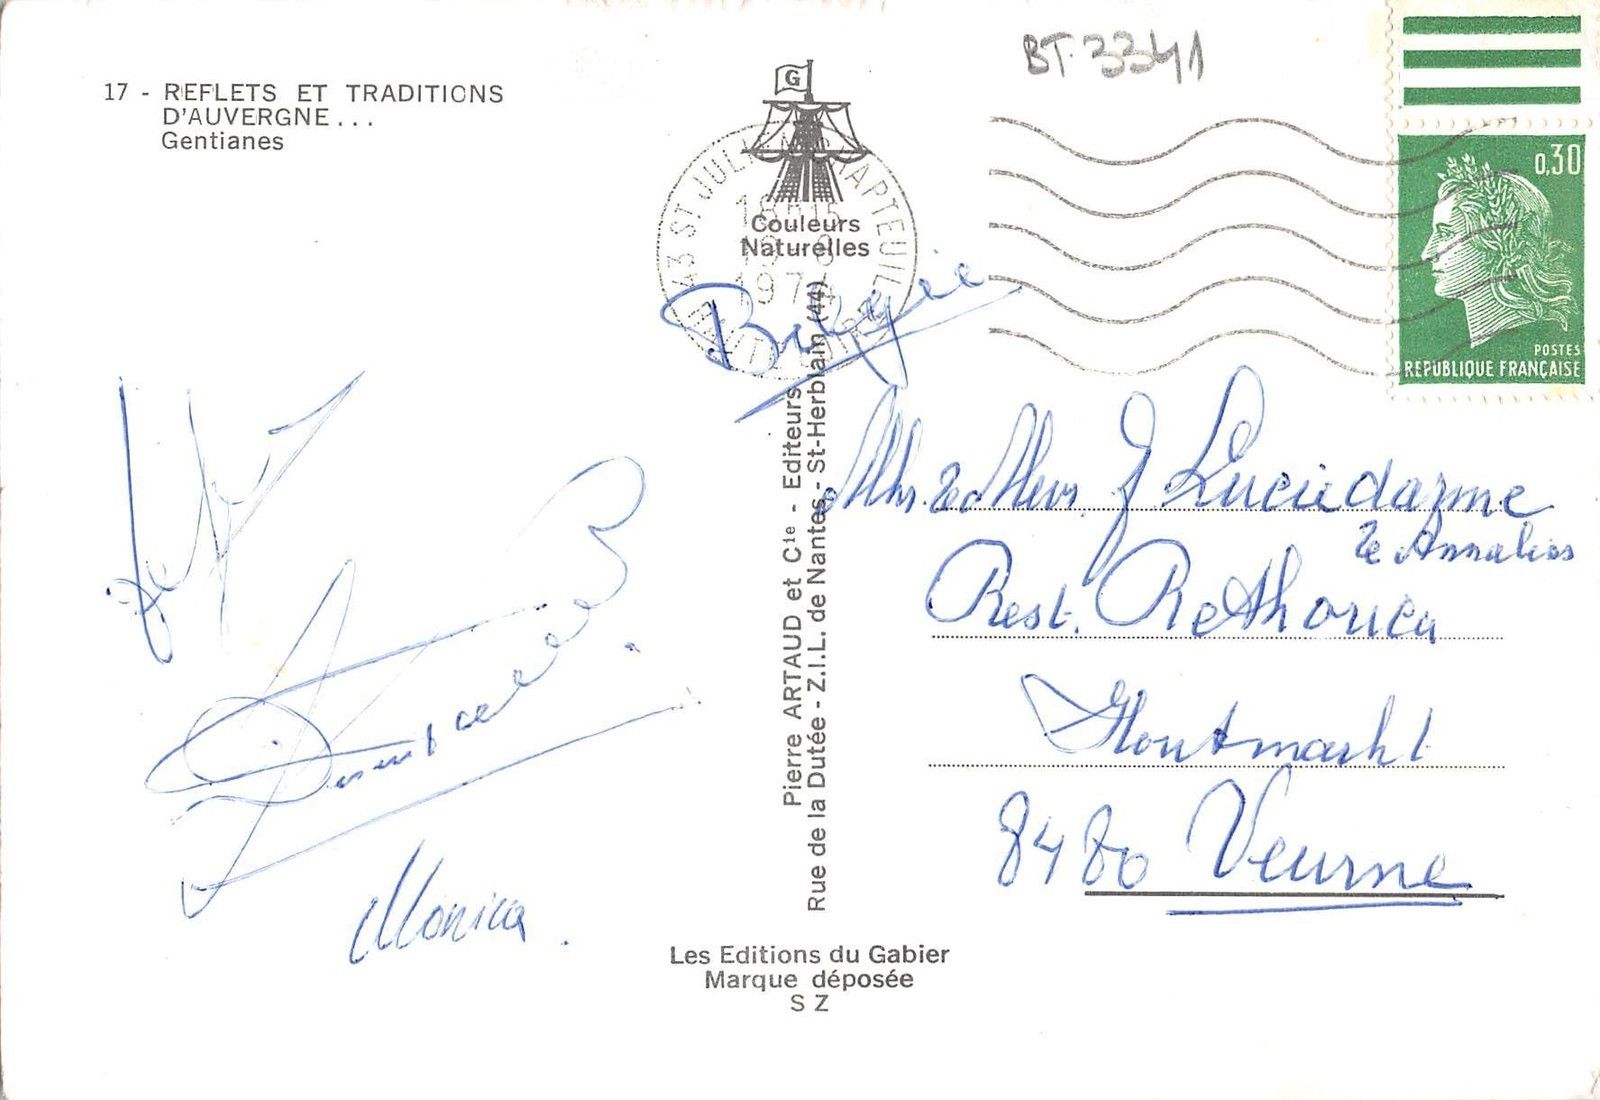 17 - REFLETS ET TRADITIONS
D'AUVERGNE...
Gentianes
BT. 3341
G
Couleurs
Naturelles
43 ST JULIEN CHAPTEUIL
HAUTE LOIRE
1974
0,30
POSTES
REPUBLIQUE FRANÇAISE
België
Pierre ARTAUD et Cie - Editeurs
Rue de la Dutée - Z.I.L. de Nantes - St-Herblain (44)
Mevr. J
Rest. Rethorica
8480 Veurne
Monica.
Les Editions du Gabier
Marque déposée
S Z